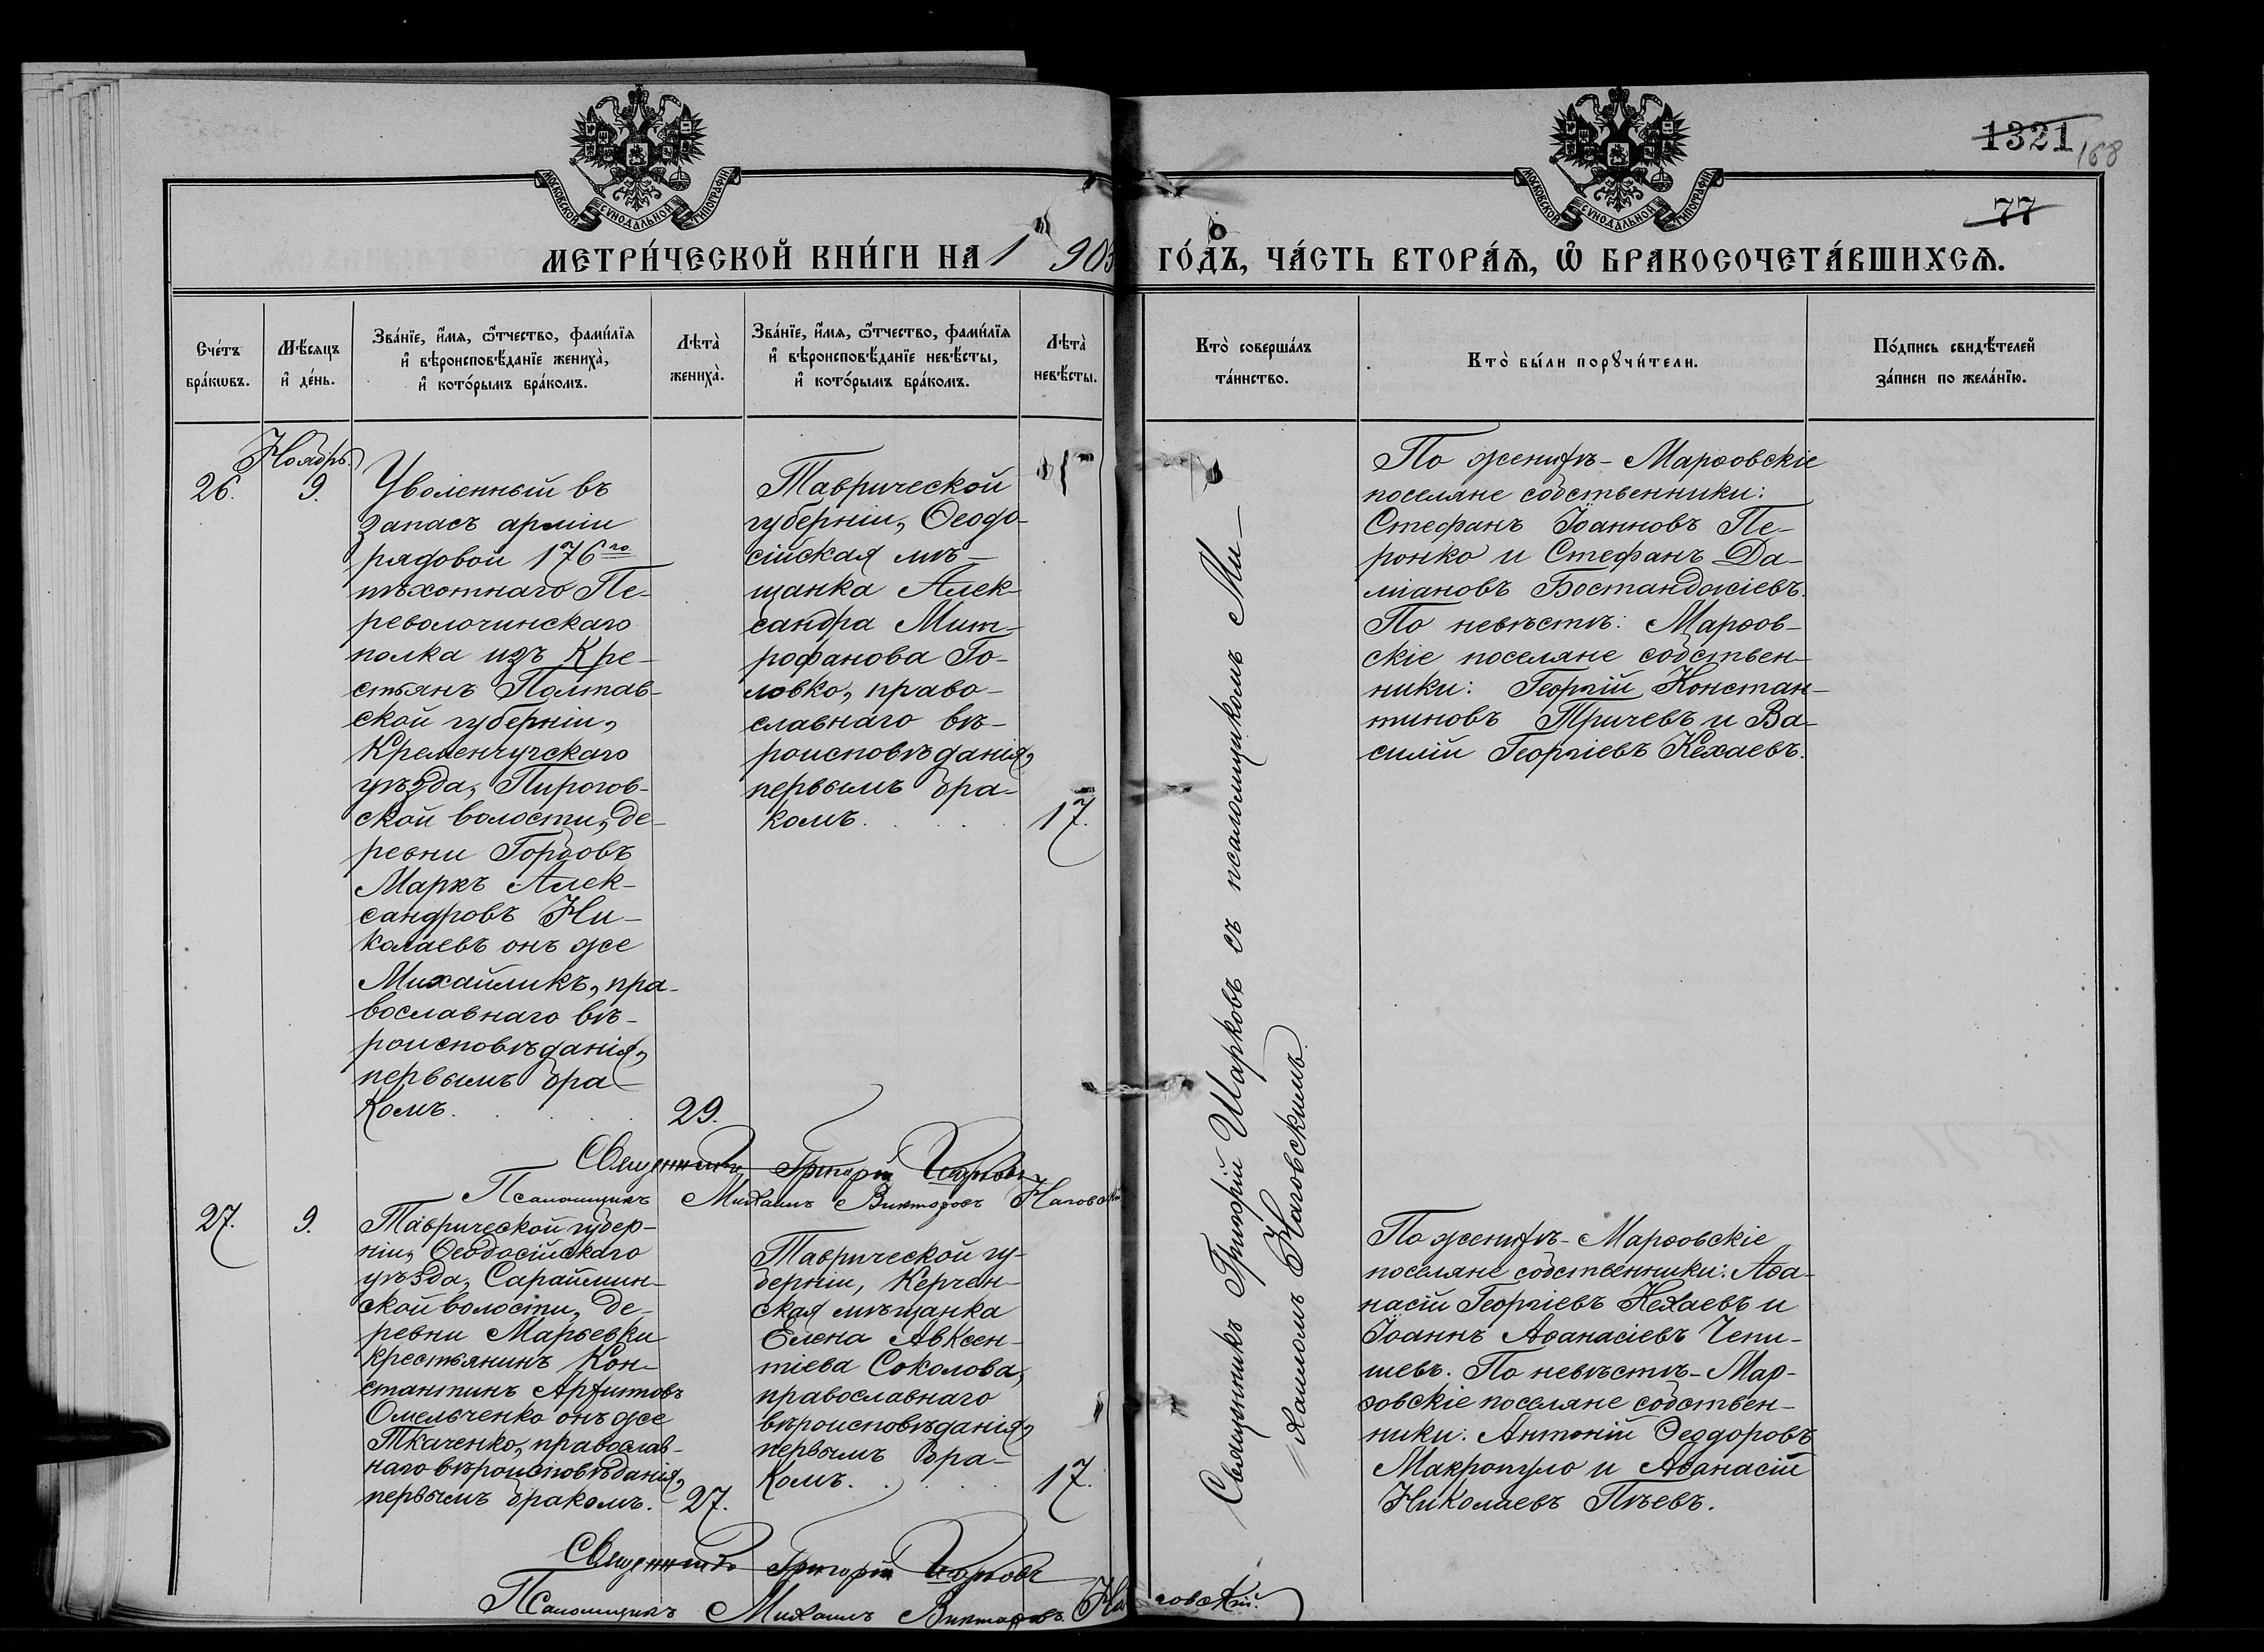 1321
168
77
МОСКОВСКОЙ СѴНОДАЛЬНОЙ ТИПОГРАФІИ
МОСКОВСКОЙ СѴНОДАЛЬНОЙ ТИПОГРАФІИ
МЕТРИ́ЧЕСКОЙ КНИ́ГИ НА 1903 ГО́ДЪ, ЧА́СТЬ ВТОРА́Ѧ, Ѡ҆ БРАКОСОЧЕТА́ВШИХСѦ.
Сче́тъ
бра́кѡвъ.
Мѣ́сѧцъ
и҆ де́нь.
Зва́нїе, и҆́мѧ, ѻ҆́тчество, фами́лїѧ
и҆ вѣроисповѣ́данїе жениха̀,
и҆ кото́рымъ бра́комъ.
Лѣта̀
жениха̀.
Зва́нїе, и҆́мѧ, ѻ҆́тчество, фами́лїѧ
и҆ вѣроисповѣ́данїе невѣ́сты,
и҆ кото́рымъ бра́комъ.
Лѣта̀
невѣ́сты.
Кто̀ соверша́лъ
та́инство.
Кто̀ бы́ли порꙋчи́тели.
По́дпись свидѣ́телей
за́писи по жела́нїю.
Ноябрь.
26.
9.
Уволенный въ
запасъ арміи
рядовой 176го
пѣхотнаго Пе-
револочинскаго
полка изъ Кре-
стьянъ Полтав-
ской губерніи,
Кременчугскаго
уѣзда, Пирогов-
ской волости, де-
ревни Горбовъ
Маркъ Алек-
сандровъ Ни-
колаевъ онъ же
Михайликъ, пра-
вославнаго вѣ-
роисповѣданія,
первымъ бра-
комъ.
29.
Таврической
губерніи, Ѳеодо-
сійская мѣ-
щанка Алек-
сандра Мит-
рофанова Го-
ловко, право-
славнаго вѣ-
роисповѣданія,
первымъ бра-
комъ.
17.
Священникъ Григорій Шарковъ съ псаломщикомъ Ми-
хаиломъ Наговскимъ.
По женихѣ - Марѳовскіе
поселяне собственники:
Стефанъ Іоанновъ Пе-
ронко и Стефанъ Да-
міановъ Бостанджіевъ.
По невѣстѣ: Марѳов-
скіе поселяне собствен-
ники: Георгій Констан-
тиновъ Тричевъ и Ва-
силій Георгіевъ Кехаевъ.
Священникъ Григорій Шарковъ
Псаломщикъ Михаилъ Викторовъ Наговскій
27.
9.
Таврической губер-
ніи, Ѳеодосійскаго
уѣзда, Сараймин-
ской волости, де-
ревни Марьевки
крестьянинъ Кон-
стантинъ Архиповъ
Омельченко онъ же
Ткаченко, православ-
наго вѣроисповѣданія,
первымъ бракомъ.
27.
Таврической гу-
берніи, Керчен-
ская мѣщанка
Елена Авксен-
тіева Соколова,
православнаго
вѣроисповѣданія,
первымъ бра-
комъ.
17.
По женихѣ - Марѳовскіе
поселяне собственники: Аѳа-
насій Георгіевъ Кехаевъ и
Іоаннъ Аѳанасіевъ Чепи-
шевъ. По невѣстѣ - Мар-
ѳовскіе поселяне собствен-
ники: Антоній Ѳеодоровъ
Макропуло и Аѳанасій
Николаевъ Пѣевъ.
Священникъ Григорій Шарковъ
Псаломщикъ Михаилъ Викторовъ Наговскій.